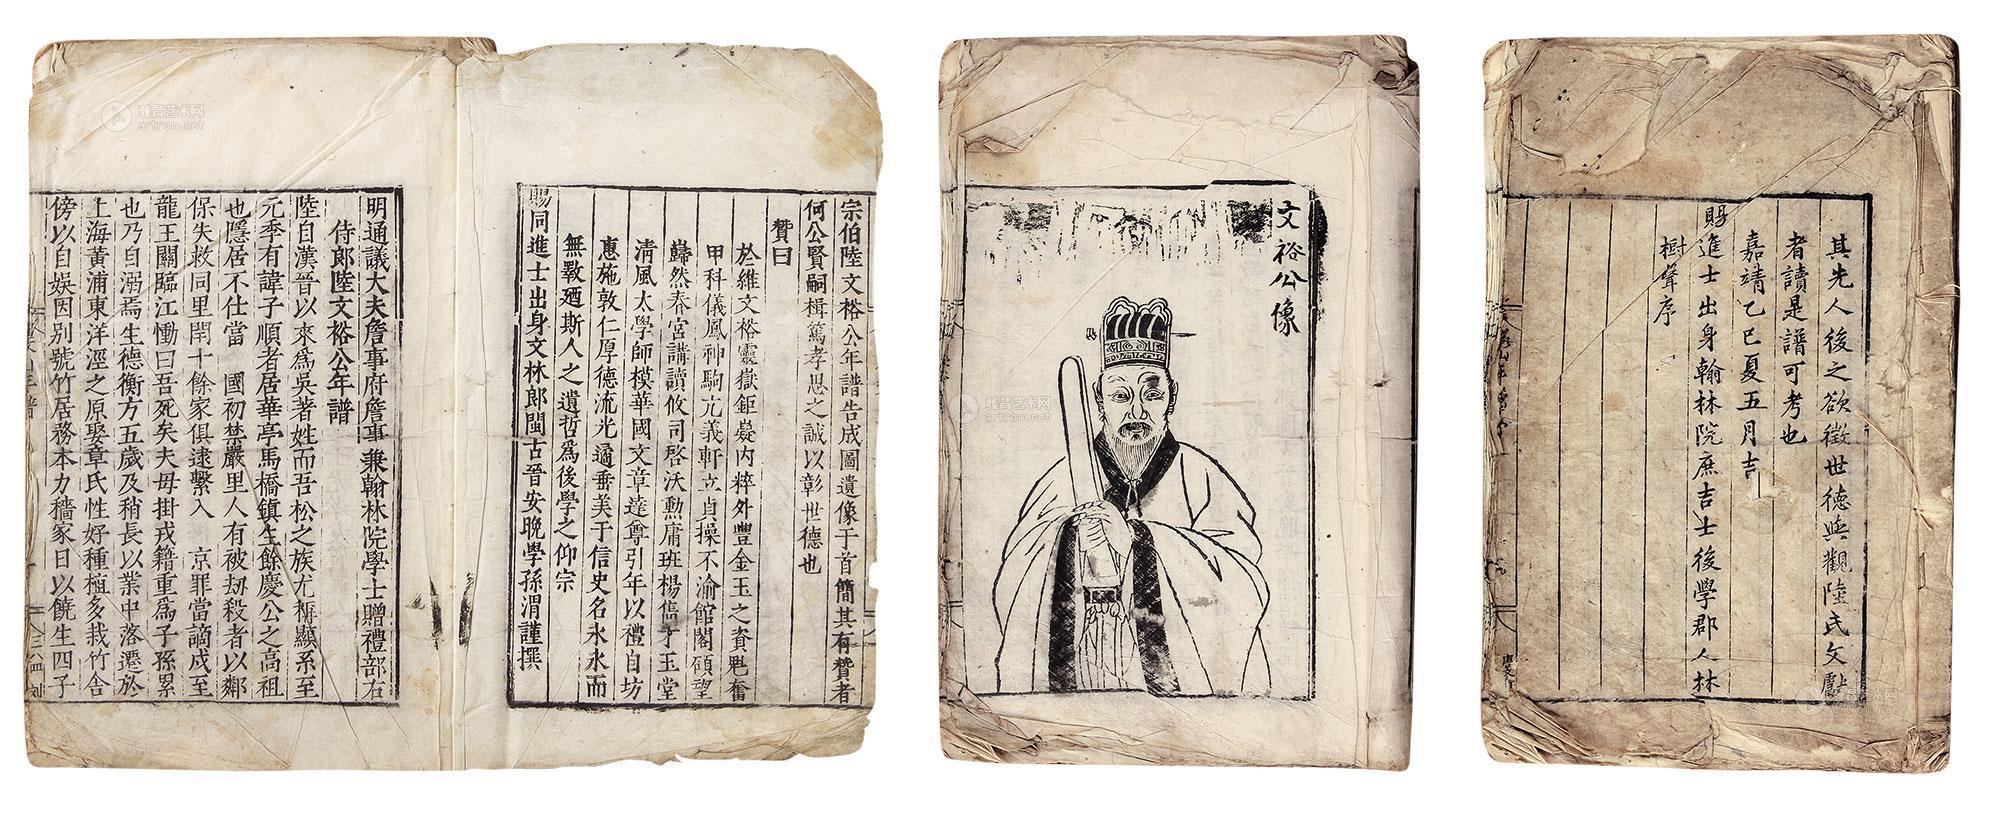 其先人後之欲徵世德與觀陸氏文獻
者讀是譜可考也
嘉靖乙巳夏五月吉
賜進士出身翰林院庶吉士後學郡人林
樹聲序
文裕公像
宗伯陸文裕公年譜告成圖遺像于首簡其有贊者
何公賢嗣楫篤孝思之誠以彰世德也
贊曰
於維文裕靈嶽鉅嶷內粹外豐金玉之資鬼奮
甲科儀鳳神駒亢義軒立貞操不渝館閣碩望
巋然春宮講讀攸司啓沃勲庸班楊儁才玉堂
淸風太學師模華國文章達尊引年以禮自坊
惠施敦仁厚德流光遹垂美于信史名永永而
無斁廼斯人之遺哲爲後學之仰宗
賜同進士出身文林郎閩古晉安晚學孫渭謹撰
明通議大夫詹事府詹事兼翰林院學士贈禮部右
侍郎陸文裕公年譜
陸自漢晉以來爲吳著姓而吾松之族尤稱顯系至
元季有諱子順者居華亭馬橋鎮生餘慶公之高祖
也隱居不仕當 國初禁嚴里人有被刼殺者以鄰
保失救同里閈十餘家俱逮繫入 京罪當謫戍至
龍王關臨江慟曰吾死矣夫毋掛戎籍重爲子孫累
也乃自溺焉生德衡方五歲及稍長以業中落遷於
上海黃浦東洋涇之原娶章氏性好種植多栽竹舍
傍以自娛因別號竹居務本力穡家日以饒生四子
雅昌艺术网
artron.net